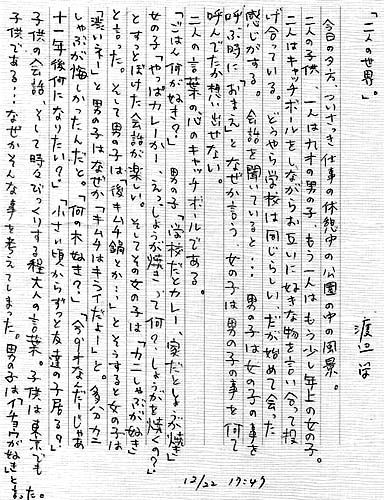 「二人の世界。」
渡辺 は
今日の夕方ついさっき仕事の休憩中の公園の中の風景。
二人の子供、一人は九才の男の子、もう一人はもう少し年上の女の子。
二人はキャッチボールをしながらお互いに好きな物を言い合って投
げ合っている。どうやら学校は同じらしい、だが始めて会った
感じがする。会話を聞いていると…男の子は女の子の事を
呼ぶ時に「おまえ」となぜか言う 女の子は男の子の事を何て
呼んでたか想い出せない。
二人の言葉の心のキャッチボールである。
「ごはん何が好き？」 男の子「学校だとカレー、家だとしょうが焼き」
女の子「やっぱカレーかー、えっしょうが焼きって何？しょうがを焼くの？」
とすっとぼけた会話が楽しい。そしてその女の子は「カニしゃぶが好き」
と言った。そして男の子は後キムチ鍋か…」とそうすると女の子は
「渋いネ」と男の子はなぜか「キムチはキライだよー」と。多分カニ
しゃぶが悔しかったんだと。「何の木好き？」「今の木なんだーじゃあ
十一年後何になりたい？」「小さい頃からずっと友達の子居る？」
子供の会話、そして時々びっくりする程大人の言葉、子供は果てもで
子供である…なぜかそんな事を考えてしまった。男の子は「イチョウが好きと言った。
12/22 17:47